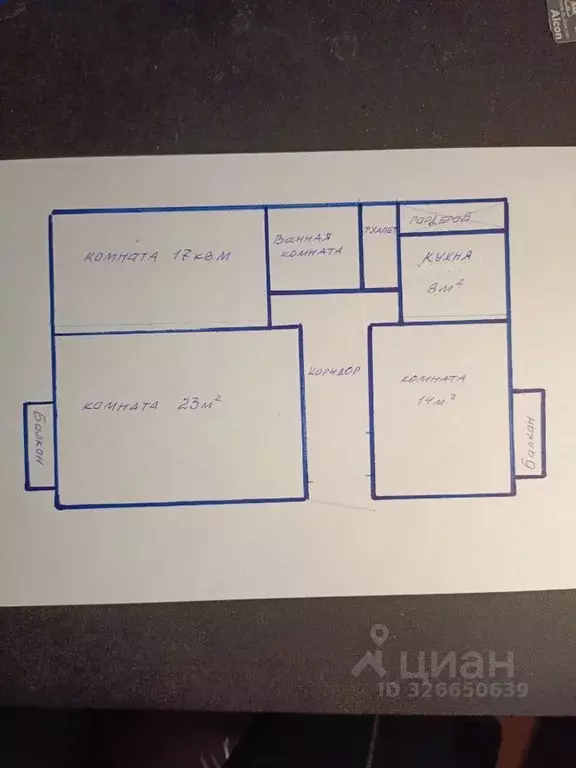 Alcon
комната 17кв м
Ванная
комната
туалет
гардероб
кухня
8м²
комната 23м²
коридор
комната
14м²
Балкон
балкон
циан
ID 326650639